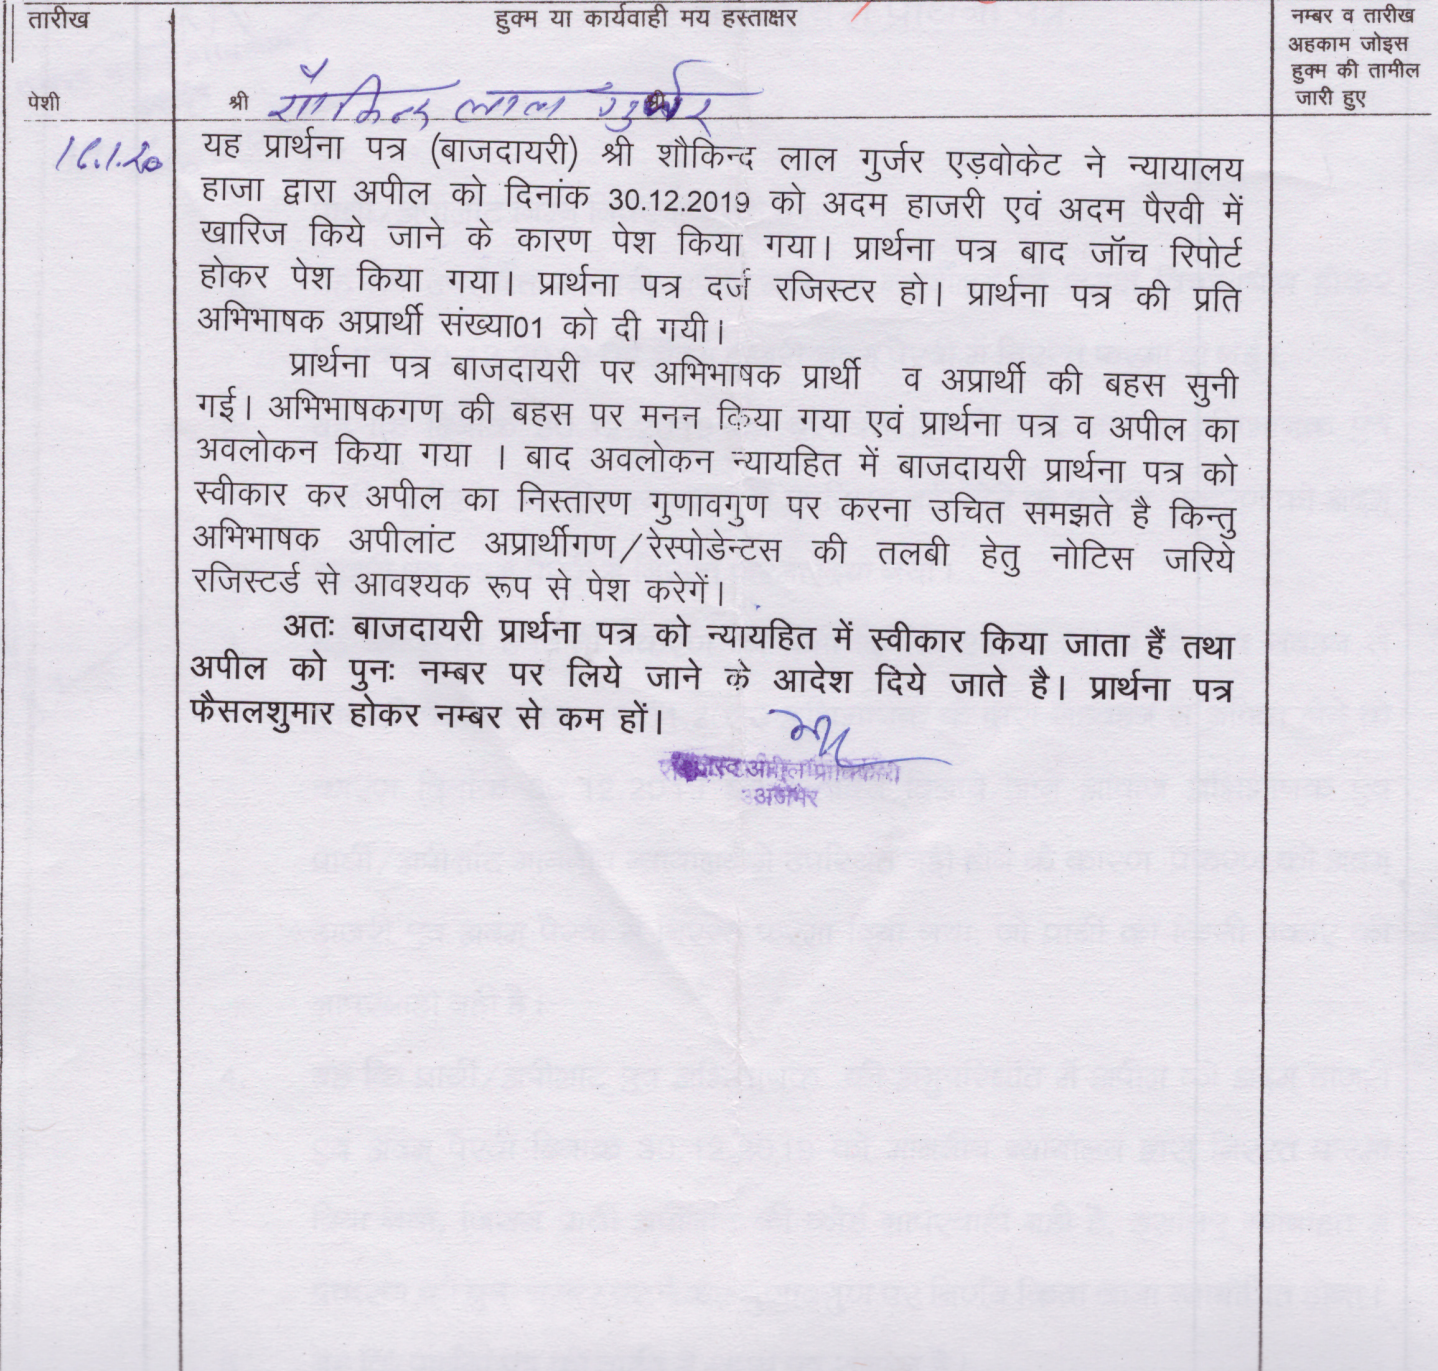 तारीख
हुक्म या कार्यवाही मय हस्ताक्षर
नम्बर व तारीख
अहकाम जोइस
हुक्म की तामील
जारी हुए
पेशी
श्री शौकिन्द लाल गुर्जर
यह प्रार्थना पत्र (बाजदायरी) श्री शौकिन्द लाल गुर्जर एड़वोकेट ने न्यायालय
हाजा द्वारा अपील को दिनांक 30.12.2019 को अदम हाजरी एवं अदम पैरवी में
खारिज किये जाने के कारण पेश किया गया। प्रार्थना पत्र बाद जॉच रिपोर्ट
होकर पेश किया गया। प्रार्थना पत्र दर्ज रजिस्टर हो। प्रार्थना पत्र की प्रति
अभिभाषक अप्रार्थी संख्या01 को दी गयी।
प्रार्थना पत्र बाजदायरी पर अभिभाषक प्रार्थी व अप्रार्थी की बहस सुनी
गई। अभिभाषकगण की बहस पर मनन किया गया एवं प्रार्थना पत्र व अपील का
अवलोकन किया गया । बाद अवलोकन न्यायहित में बाजदायरी प्रार्थना पत्र को
स्वीकार कर अपील का निस्तारण गुणावगुण पर करना उचित समझते है किन्तु
अभिभाषक अपीलांट अप्रार्थीगण/रेस्पोडेन्टस की तलबी हेतु नोटिस जरिये
रजिस्टर्ड से आवश्यक रूप से पेश करेगें।
अतः बाजदायरी प्रार्थना पत्र को न्यायहित में स्वीकार किया जाता हैं तथा
अपील को पुनः नम्बर पर लिये जाने के आदेश दिये जाते है। प्रार्थना पत्र
फैसलशुमार होकर नम्बर से कम हों।
अजमेर